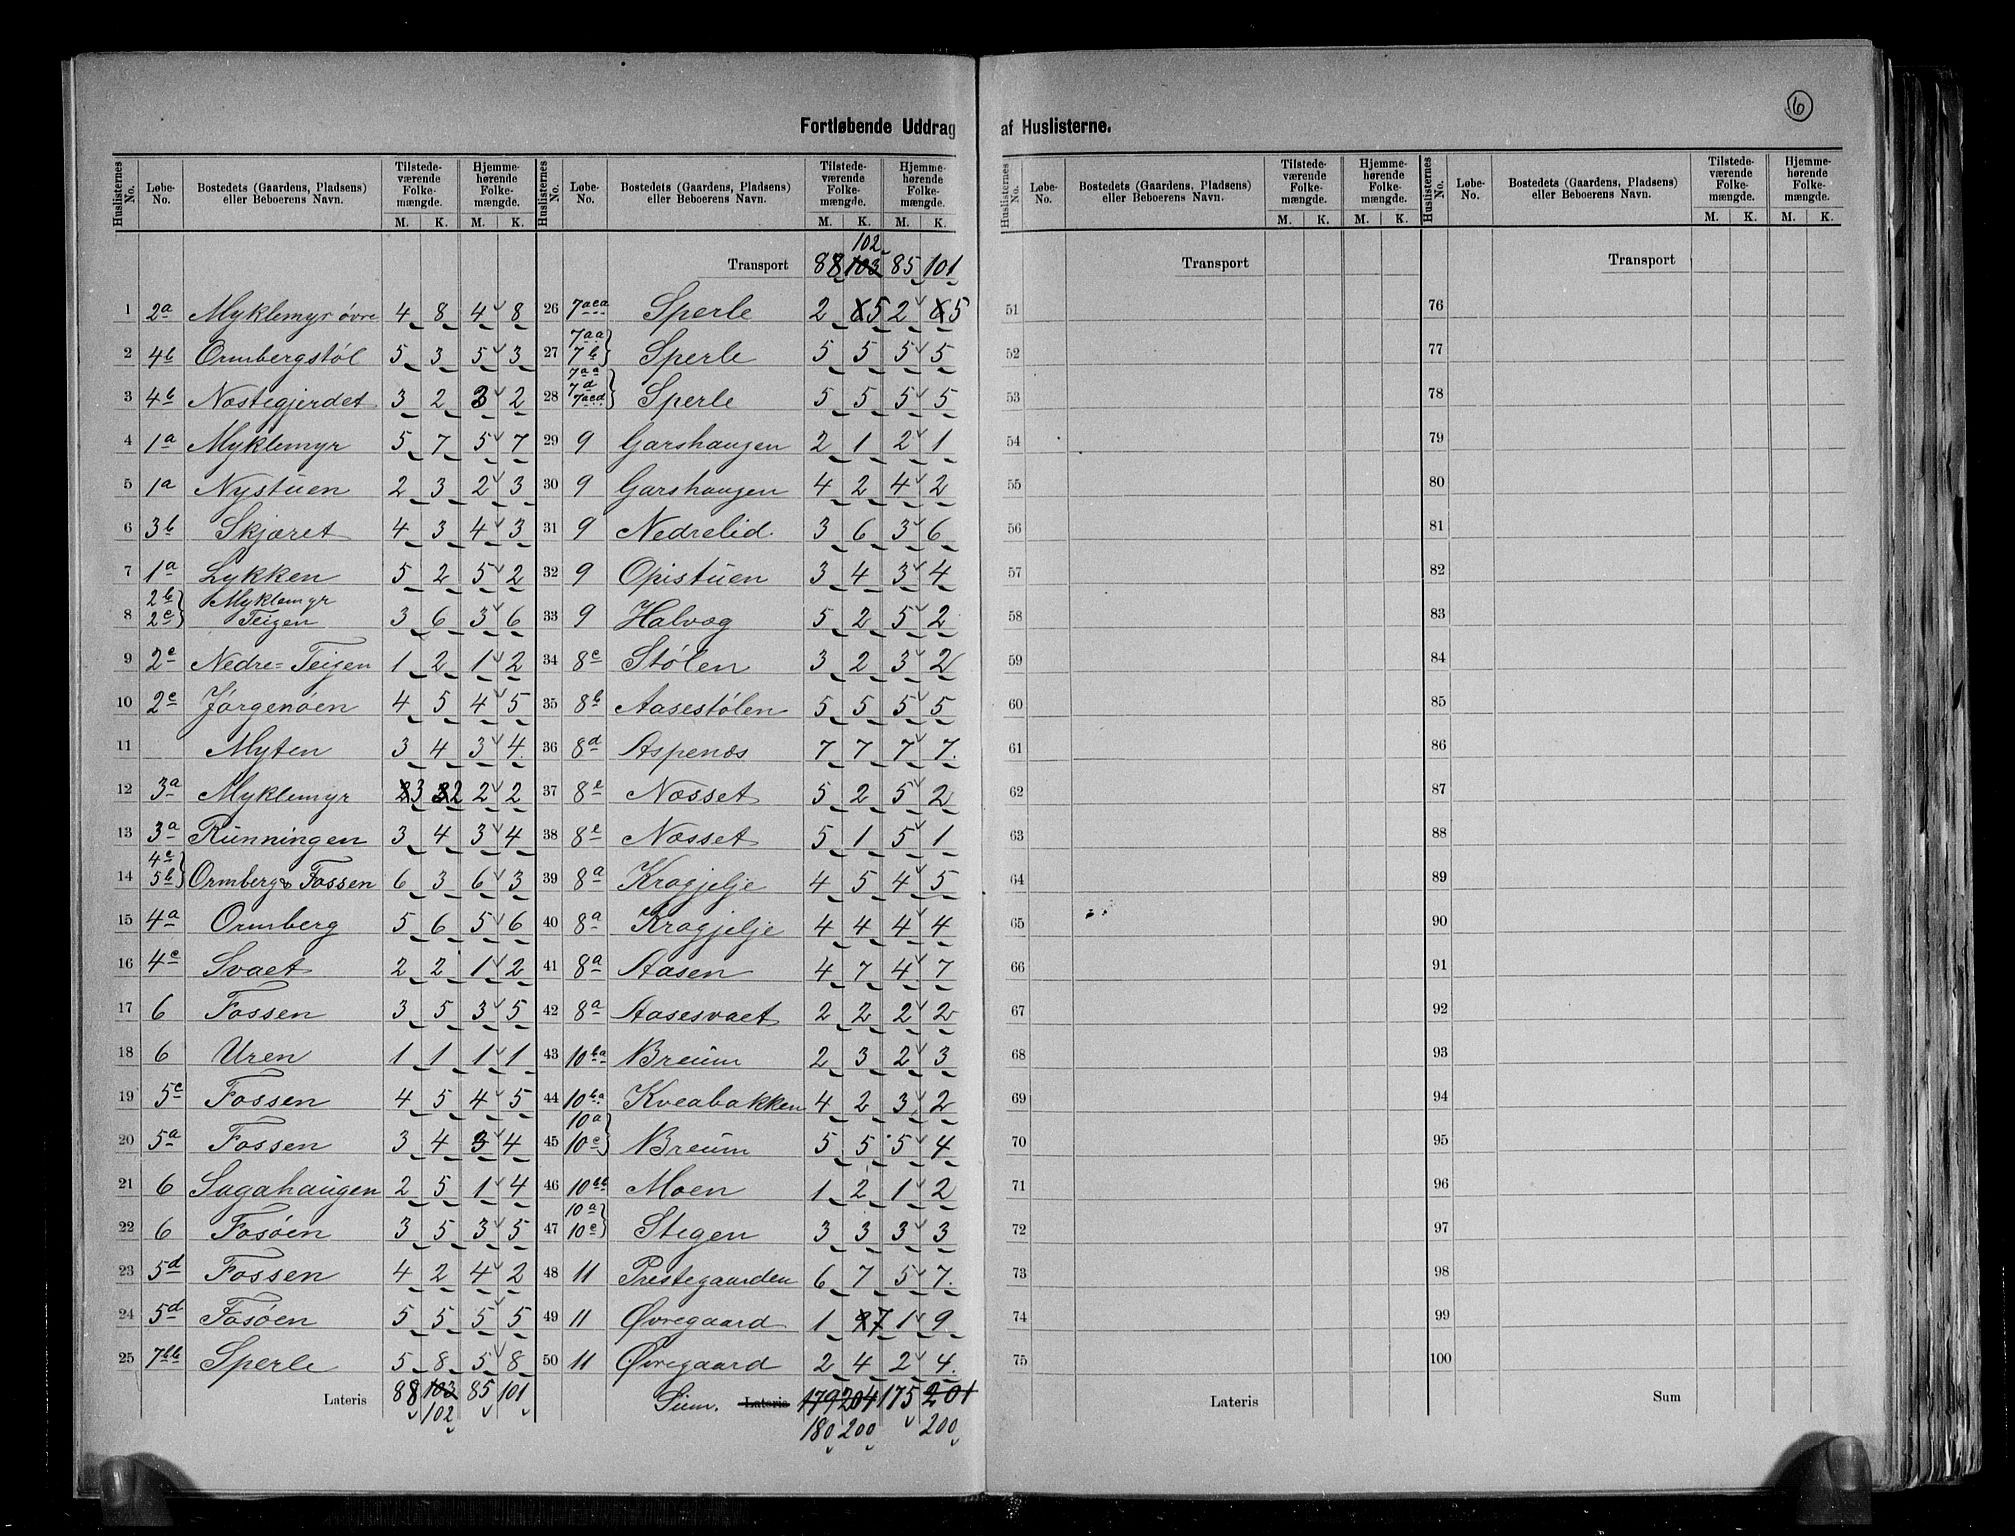 6
Fortløbende Uddrag af Huslisterne.
Huslisternes No. Løbe-No. Bostedets (Gaardens, Pladsens) eller Beboerens Navn. Tilstedeværende Folkemængde. M. K. Hjemmehørende Folkemængde. M. K.
1 2a Myklemyr øvre 4 8 4 8
2 4b Ormbergstøl 5 3 5 3
3 4b Nostegjerdet 3 2 3 2
4 1a Myklemyr 5 7 5 7
5 1a Nystuen 2 3 2 3
6 3b Skjæret 4 3 4 3
7 1a Lykken 5 2 5 2
8 2b 2c Myklemyr Teigen 3 6 3 6
9 2c Nedre=Teigen 1 2 1 2
10 2c Jørgenøen 4 5 4 5
11 Myten 3 4 3 4
12 3a Myklemyr 3 2 2 2
13 3a Runningen 3 4 3 4
14 4c 5b Ormberg & Fossen 6 3 6 3
15 4a Ormberg 5 6 5 6
16 4c Svaet 2 2 1 2
17 6 Fossen 3 5 3 5
18 6 Uren 1 1 1 1
19 5c Fossen 4 5 4 5
20 5a Fossen 3 4 3 4
21 6 Sagahaugen 2 5 1 4
22 6 Fosøen 3 5 3 5
23 5d Fossen 4 2 4 2
24 5d Fosøen 5 5 5 5
25 7bb Sperle 5 8 5 8
Lateris 88 103 85 101
102
Huslisternes No. Løbe-No. Bostedets (Gaardens, Pladsens) eller Beboerens Navn. Tilstedeværende Folkemængde. M. K. Hjemmehørende Folkemængde. M. K.
102
Transport 88 103 85 101
26 7aca Sperle 2 5 2 5
27 7aa 7b Sperle 5 5 5 5
28 7aa 7d 7acd Sperle 5 5 5 5
29 9 Garshaugen 2 1 2 1
30 9 Garshaugen 4 2 4 2
31 9 Nedrelid 3 6 3 6
32 9 Opistuen 3 4 3 4
33 9 Halvog 5 2 5 2
34 8c Stølen 3 2 3 2
35 8b Aasestølen 5 5 5 5
36 8d Aspenæs 7 7 7 7
37 8e Næsset 5 2 5 2
38 8e Næsset 5 1 5 1
39 8a Kragjelje 4 5 4 5
40 8a Kragjelje 4 4 4 4
41 8a Aasen 4 7 4 7
42 8a Aasesvaet 2 2 2 2
43 10ba Breum 2 3 2 3
44 10ba Kveabakken 4 2 3 2
45 10a 10c Breum 5 5 5 4
46 10bb Moen 1 2 1 2
47 10a 10c Stegen 3 3 3 3
48 11 Prestegaarden 6 7 5 7
49 11 Øvregaard 1 7 1 9
50 11 Øvregaard 2 4 2 4
Sum. Lateris 179 204 175 201
180 200 200
Huslisternes No. Løbe-No. Bostedets (Gaardens, Pladsens) eller Beboerens Navn. Tilstedeværende Folkemængde. M. K. Hjemmehørende Folkemængde. M. K.
Transport
51
52
53
54
55
56
57
58
59
60
61
62
63
64
65
66
67
68
69
70
71
72
73
74
75
Lateris
Huslisternes No. Løbe-No. Bostedets (Gaardens, Pladsens) eller Beboerens Navn. Tilstedeværende Folkemængde. M. K. Hjemmehørende Folkemængde. M. K.
Transport
76
77
78
79
80
81
82
83
84
85
86
87
88
89
90
91
92
93
94
95
96
97
98
99
100
Sum